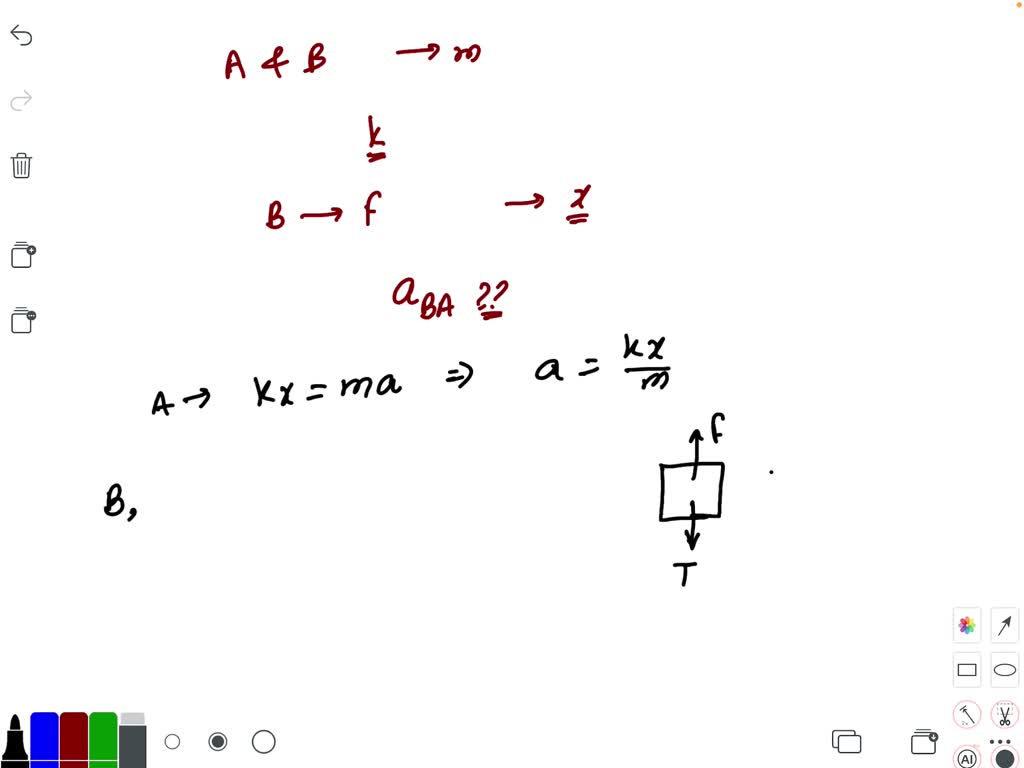 A & B → m
k
B → f → x
a_BA ??
A → kx = ma ⇒ a = kx/m
f
B,
T
AI